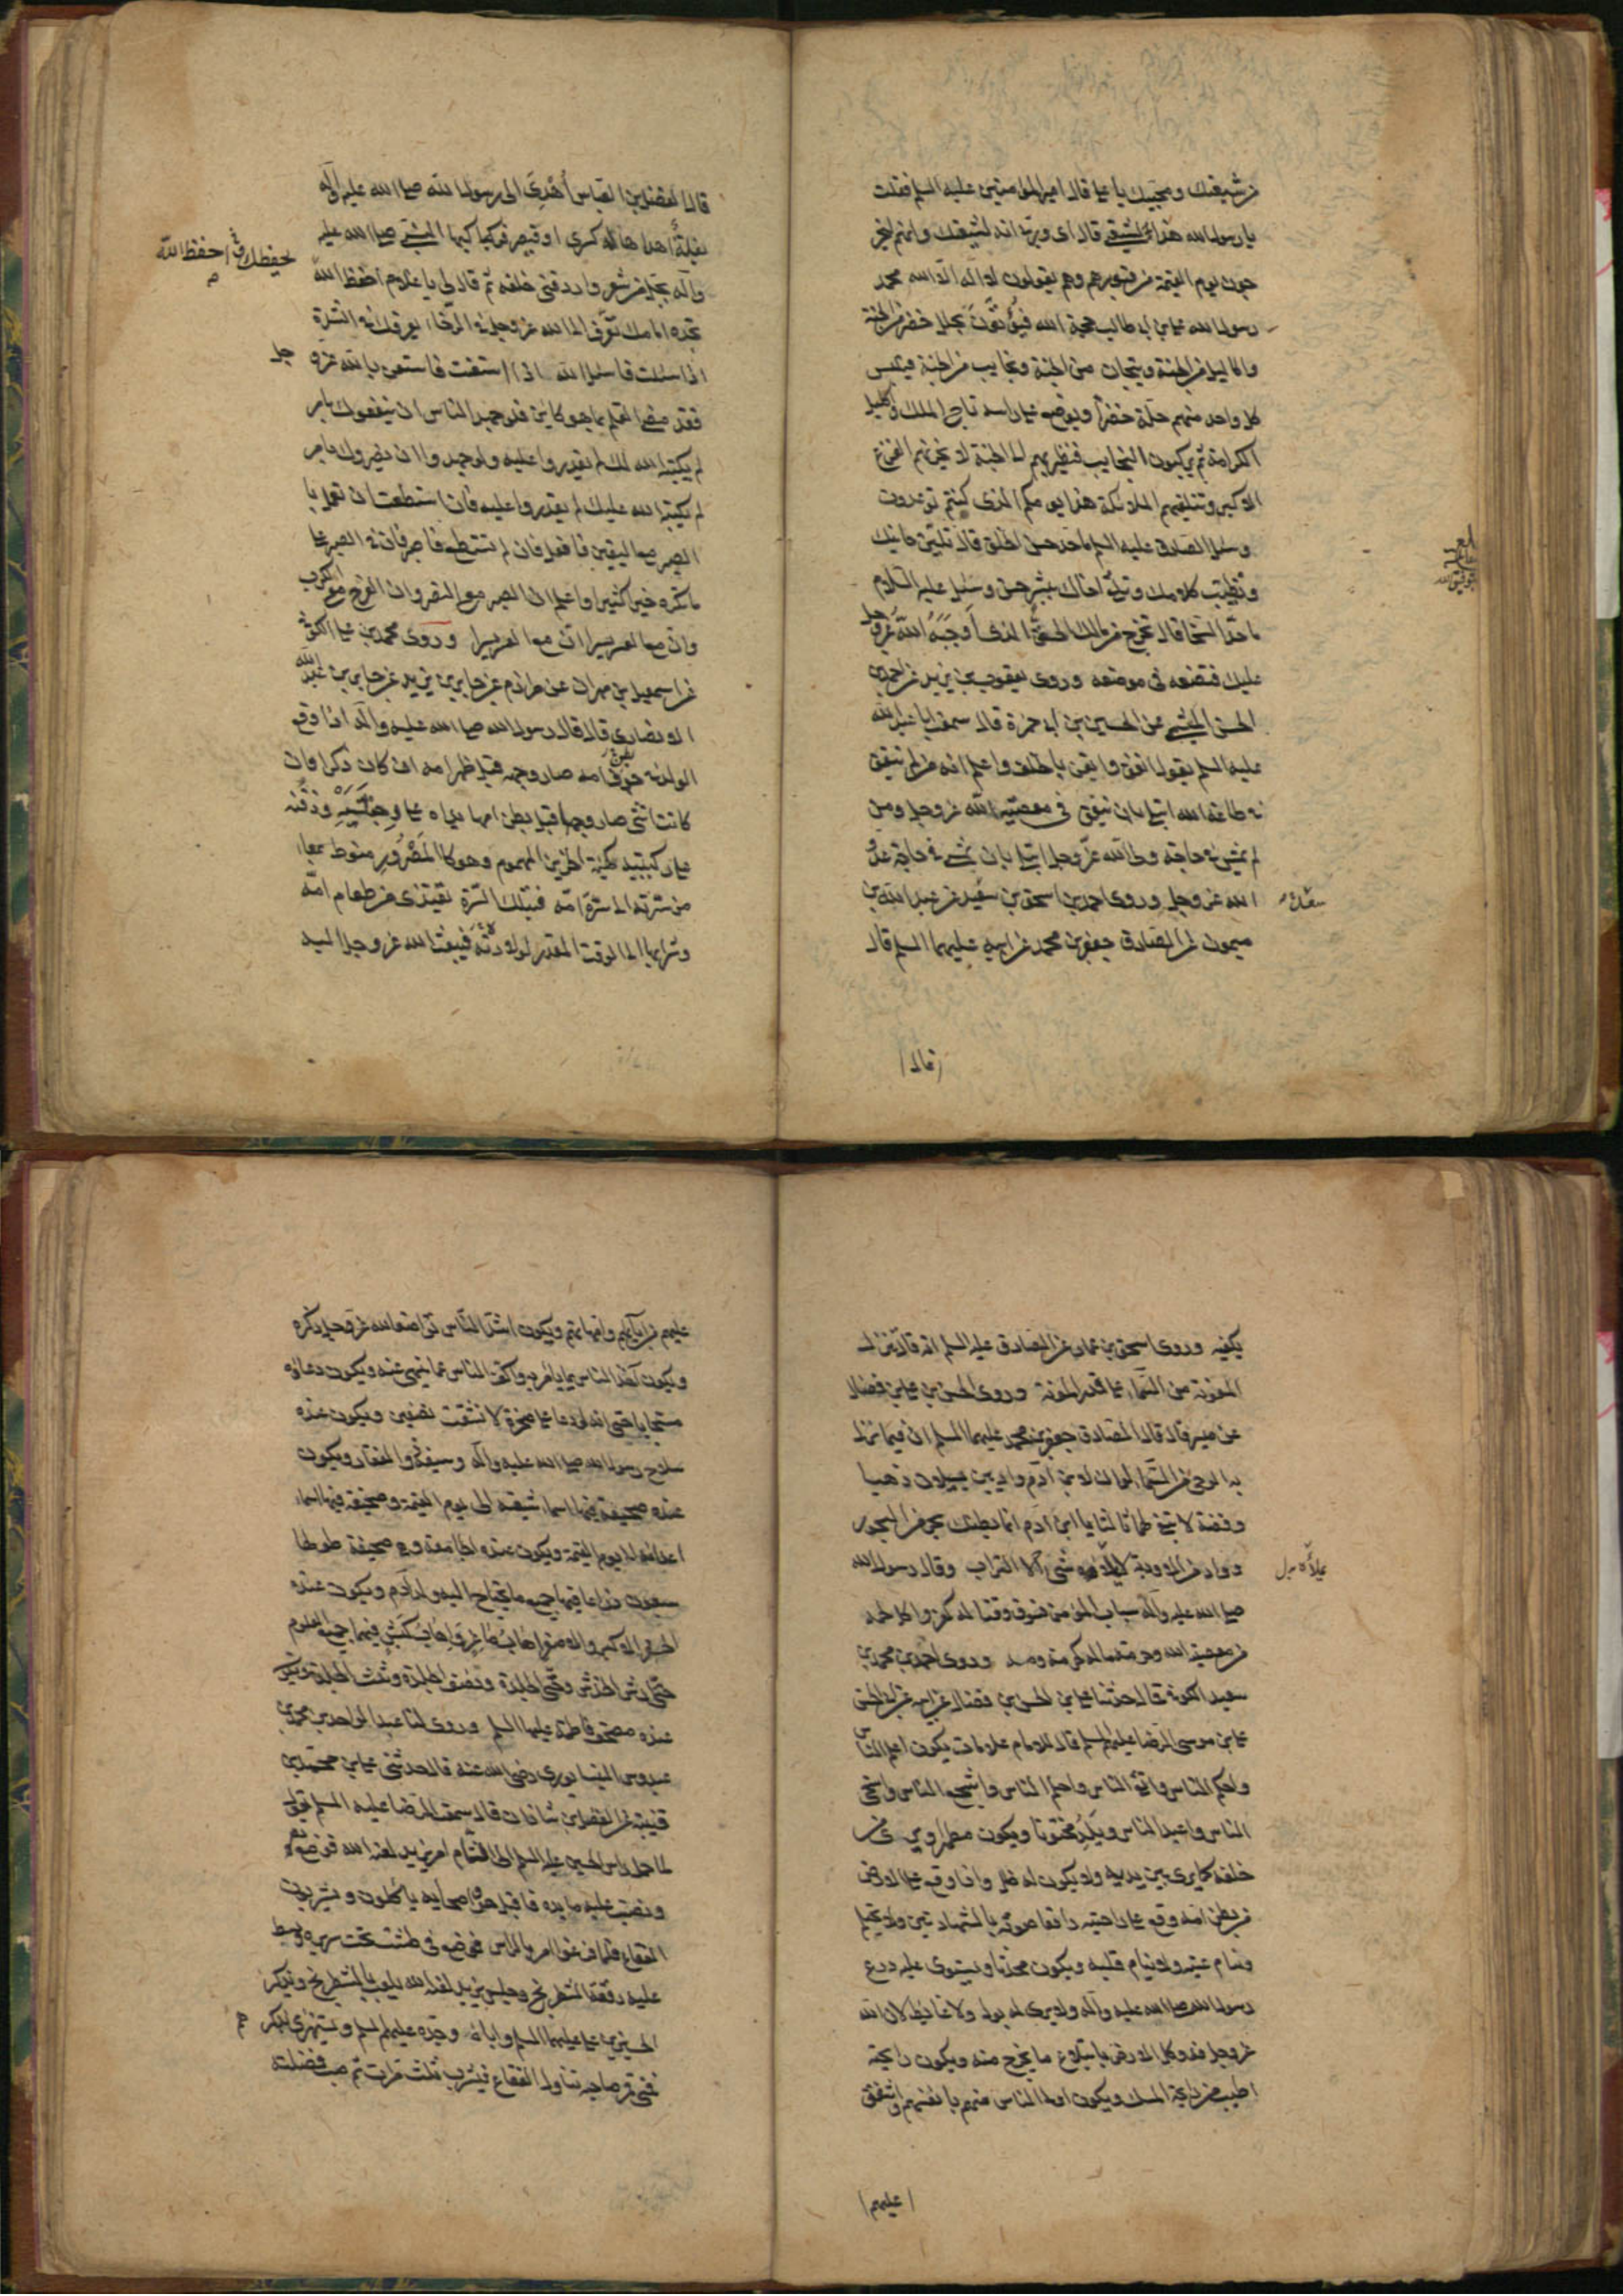 من شيعتك ومحبيك يا علي قال امير المؤمنين عليه السلم فقلت
يا رسول الله هذا لشيعتي قال اى وربي انه لشيعتك وانهم ليخر
جون يوم القيمة من قبورهم وهم يقولون لا اله الا الله محمد
رسول الله علي بن ابي طالب حجة الله فيؤتون بحلل خضر من الجنة
واكاليل من الجنة وتيجان من الجنة ونجايب من الجنة فيلبس
كل واحد منهم حلة خضراء ويوضع على راسه تاج الملك واكليل
الكرامة ثم يركبون النجايب فتطير بهم الى الجنة لا يحزنهم الفزع
الاكبر وتتلقيهم الملائكة هذا يومكم الذى كنتم توعدون
وسئل الصادق عليه السلم ما حد حسن الخلق قال تلين جانبك
وتطيب كلامك وتلقى اخاك ببشر حسن وسئل عليه السلام
ما حد السخا قال تخرج من مالك الحق الذى اوجبه الله عز وجل
عليك فتضعه فى موضعه وروى يعقوب بن يزيد عن احمد بن
الحسن الميثمي عن الحسين بن ابي حمزة قال سمعت ابا عبد الله
عليه السلم يقول انفق وايقن بالخلف واعلم انه من لم ينفق
في طاعة الله ابتلى بان ينفق فى معصية الله عز وجل ومن
لم يمش في حاجة ولي الله عز وجل ابتلي بان يمشي في حاجة عدو
الله عز وجل وروى احمد بن اسحق بن سعيد عن عبد الله بن
سعد
ميمون عن الصادق جعفر بن محمد عن ابيه عليهما السلم قال
قال
قال الفضل بن العباس اهدى الى رسول الله صلى الله عليه واله
بغلة اهداها له كسرى او قيصر فركبها النبي صلى الله عليه
واله بجل من شعر واردفنى خلفه ثم قال لى يا غلام احفظ الله
يحفظك واحفظ الله
تجده امامك تعرف الى الله عز وجل في الرخاء يعرفك في الشدة
اذا سئلت فاسئل الله اذا استعنت فاستعن بالله عز و
جل
فقد مضى القلم بما هو كاين فلو جهد الناس ان ينفعوك بامر
لم يكتبه الله لك لم يقدروا عليه ولو جهدوا ان يضروك بامر
لم يكتبه الله عليك لم يقدروا عليه فان استطعت ان تعمل با
الصبر مع اليقين فافعل فان لم تستطع فاصبر فان في الصبر على
ما تكره خيرا كثيرا واعلم ان الصبر مع النصر وان الفرج مع الكرب
وان مع العسر يسرا ان مع العسر يسرا وروى محمد بن علي الكوفي
عن اسمعيل بن مهران عن مرازم عن جابر بن يزيد عن جابر بن عبد الله
الانصارى قال قال رسول الله صلى الله عليه واله اذا وقع
الولد في جوف امه صار وجهه قبل ظهر امه ان كان ذكرا وان
كانت انثى صار وجهها قبل بطن امها يداه على وجنتيه وذقنه
على ركبتيه كهيئة الحزين المهموم وهو كالمصرور منوط بمعاء
من سرته الى سرة امه فبتلك السرة يغتذى من طعام امه
وشرابها الى الوقت المقدر لولادته فيبعث الله عز وجل اليه
يكفيه وروى اسحق بن عمار عن الصادق عليه السلم انه قال تنزل
المعونة من السماء على قدر المؤنة وروى الحسن بن علي بن فضال
عن ميسر قال قال الصادق جعفر بن محمد عليهما السلم ان فيما نزل
به الوحى من السماء لو ان لابن آدم واديين يسيلان ذهبا
وفضة لابتغى لهما ثالثا يا ابن آدم انما بطنك بحر من البحور
وواد من الاودية لا يملاه شئ الا التراب وقال رسول الله
يملاه
صلى الله عليه وآله سباب المؤمن فسوق وقتاله كفر واكل لحمه
من معصية الله وحرمة ماله كحرمة دمه وروى احمد بن محمد بن
سعيد الكوفي قال حدثنا علي بن الحسن بن فضال عن ابيه عن ابي الحسن
علي بن موسى الرضا عليهم السلم قال للامام علامات يكون اعلم الناس
واحكم الناس واتقى الناس واحلم الناس واشجع الناس واسخى
الناس واعبد الناس ويلد مختونا ويكون مطهرا ويرى من
خلفه كما يرى من بين يديه ولا يكون له ظل واذا وقع على الارض
من بطن امه وقع على راحتيه رافعا صوته بالشهادتين ولا يحتلم
وتنام عينه ولا ينام قلبه ويكون محدثا ويستوى عليه درع
رسول الله صلى الله عليه وآله ولا يرى له بول ولا غائط لان الله
عز وجل قد وكل الارض بابتلاع ما يخرج منه ويكون رايحته
اطيب من رايحة المسك ويكون اولى الناس منهم بانفسهم واشفق
عليهم
عليهم من آبائهم وامهاتهم ويكون اشد الناس تواضعا لله عز وجل ذكره
ويكون آخذ الناس بما يامر به واكف الناس عما ينهى عنه ويكون دعاؤه
مستجابا حتى انه لو دعا على صخرة لانشقت نصفين ويكون عنده
سلاح رسول الله صلى الله عليه وآله وسيفه ذو الفقار ويكون
عنده صحيفة فيها اسماء شيعته الى يوم القيمة وصحيفة فيها اسماء
اعدائه الى يوم القيمة ويكون عنده الجامعة وهي صحيفة طولها
سبعون ذراعا فيها جميع ما يحتاج اليه ولد آدم ويكون عنده
الجفر الاكبر والاصغر اهاب ماعز واهاب كبش فيهما جميع العلوم
حتى ارش الخدش وحتى الجلدة ونصف الجلدة وثلث الجلدة ويكون
عنده مصحف فاطمة عليها السلم وروى لنا عبد الواحد بن محمد بن
عبدوس النيسابورى رضى الله عنه قال حدثنى علي بن محمد بن
قتيبة عن الفضل بن شاذان قال سمعت الرضا عليه السلم يقول
لما حمل راس الحسين عليه السلم الى الشام امر يزيد لعنه الله فوضع
ونصب عليه مايدة فاقبل هو واصحابه ياكلون ويشربون
الفقاع فلما فرغوا امر بالراس فوضع فى طشت تحت سريره وبسط
عليه رقعة الشطرنج وجلس يزيد لعنه الله يلعب بالشطرنج ويذكر
الحسين بن علي عليهما السلم واباه وجده عليهم السلم ويستهزئ بذكرهم
فمتى قمر صاحبه تناول الفقاع فيشرب ثلث مرات ثم صب فضلته